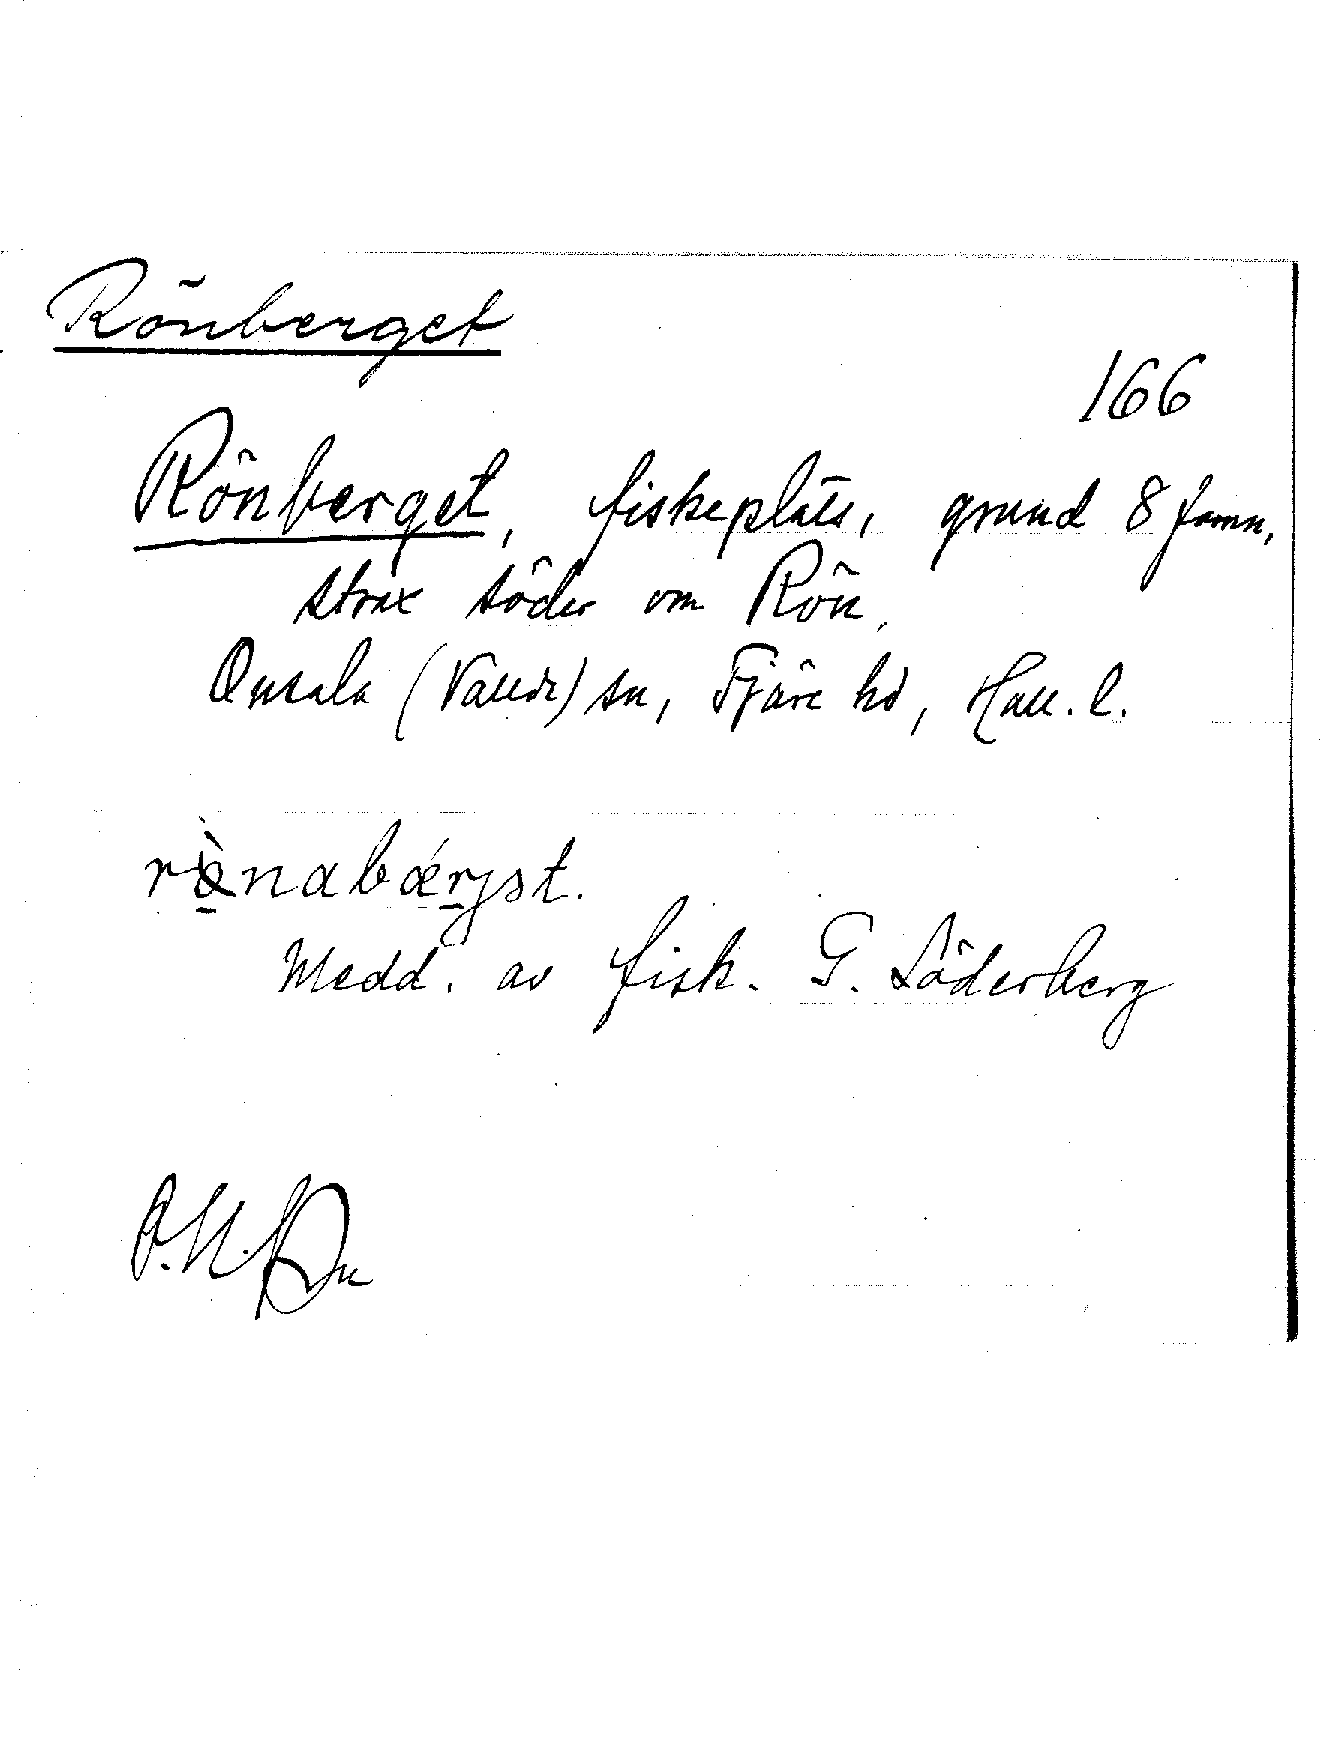 Rönberget
166
Rönberget, fiskeplats, grund 8 famn,
strax söder om Rön,
Onsala (Vallda) sn, Fjäre hd, Hall. l.
Medd. av fisk. G. Söderberg